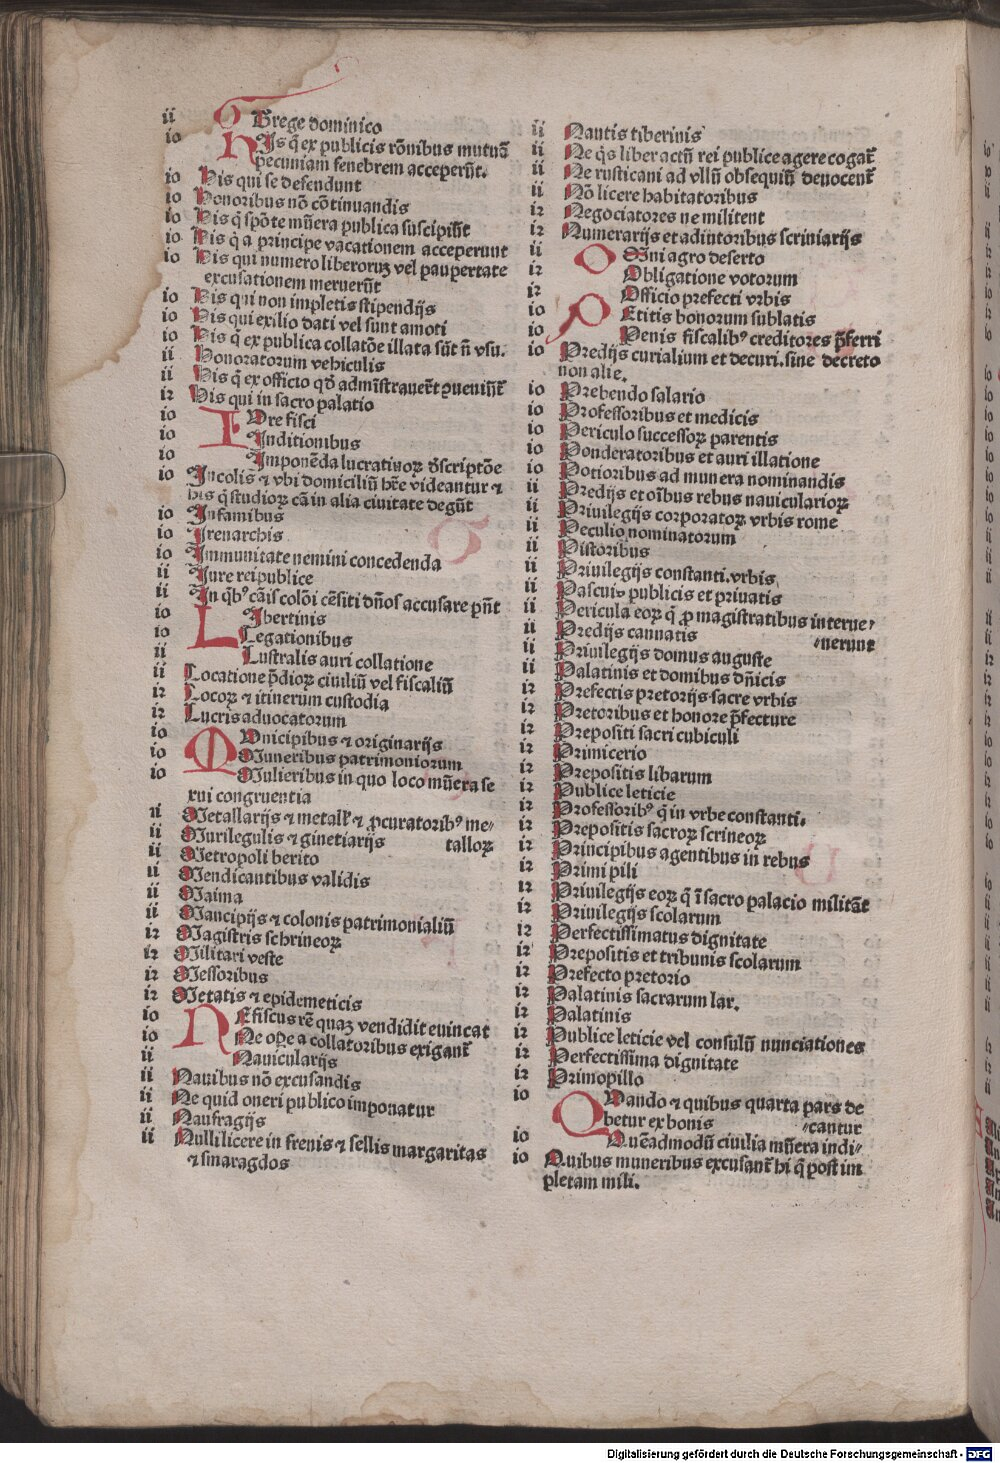 ii GBrege dominico
io HIs q̃ ex publicis rõnibus mutuã
pecuniam fenebrem acceperũt.
io His qui se defendunt
io Honoribus nõ cõtinuandis
io His q̃ spõte mũera publica suscipiũt
io His q̃ a principe vacationem acceperunt
io His qui numero liberoruꝫ vel paupertate
excusationem meruerũt
io His qui non impletis stipendijs
io His qui exilio dati vel sunt amoti
io His q̃ ex publica collatõe illata sũt ñ vsu.
ii Honoratorum vehiculis
ii His q̃ ex officio qd̃ admĩstrauer̃t ꝯuenĩũt̃
iz His qui in sacro palatio
io IVre fisci
io Inditionibus
io Imponẽda lucratiuoꝝ d̃scriptõe
io Incolis ⁊ vbi domiciliũ hr̃e videantur ⁊
his q̃ studioꝝ cã in alia ciuitate degũt
io Infamibus
io Irenarchis
io Immunitate nemini concedenda
ii Iure reipublice
ii In q̃bꝰ cãis colõi cẽsiti dños accusare pñt
io LIbertinis
io Legationibus
ii Lustralis auri collatione
ii Locatione p̃dioꝝ ciuiliũ vel fiscaliũ
iz Locoꝝ ⁊ itinerum custodia
iz Lucris aduocatorum
io MVnicipibus ⁊ originarijs
io Muneribus patrimoniorum
io Mulieribus in quo loco mũera se
xui congruentia
ii Metallarijs ⁊ metall̃ ⁊ ꝓcuratoribꝰ me-
ii Murilegulis ⁊ ginetiarijs talloꝝ
ii Metropoli berito
ii Mendicantibus validis
ii Maima
ii Mancipijs ⁊ colonis patrimonialiũ
iz Magistris schrineoꝝ
iz Militari veste
iz Messoribus
iz Metatis ⁊ epidemeticis
io NEfiscus rẽ quaꝫ vendidit euincat
io Ne ope a collatoribus exigant̃
ii Nauicularijs
ii Nauibus nõ excusandis
ii Ne quid oneri publico imponatur
ii Naufragijs
ii Nulli licere in frenis ⁊ sellis margaritas
⁊ smaragdos
ii Nautis tiberinis
ii Ne q̃s liber actũ rei publice agere cogat̃
ii Ne rusticani ad vllũ obsequiũ deuocent̃
ii Nõ licere habitatoribus
iz Negociatores ne militent
iz Numerarijs et adiutoribus scriniarijs
ii OMni agro deserto
iz Obligatione votorum
iz Officio prefecti vrbis
io PEtitis bonorum sublatis
io Penis fiscalibꝰ creditores p̃ferri
io Predijs curialium et decuri. sine decreto
non alie.
io Prebendo salario
io Professoribus et medicis
io Periculo successoꝝ parentis
io Ponderatoribus et auri illatione
io Potioribus ad munera nominandis
ii Predijs et oĩbus rebus nauicularioꝝ
ii Priuilegijs corporatoꝝ vrbis rome
ii Peculio nominatorum
ii Pistoribus
ii Priuilegijs constanti. vrbis
ii Pascuis publicis et priuatis
ii Pericula eoꝝ q̃ ꝓ magistratibus interue-
ii Predijs cannatis -nerunt
ii Priuilegijs domus auguste
ii Palatinis et domibus dñicis
iz Prefectis pretorijs sacre vrbis
iz Pretoribus et honore p̃fecture
iz Prepositi sacri cubiculi
iz Primicerio
iz Prepositis libarum
iz Publice leticie
iz Professoribꝰ q̃ in vrbe constanti.
iz Prepositis sacroꝝ scrineoꝝ
iz Principibus agentibus in rebus
iz Primi pili
iz Priuilegijs eoꝝ q̃ ĩ sacro palacio militãt
iz Priuilegijs scolarum
iz Perfectissimatus dignitate
iz Prepositis et tribunis scolarum
iz Prefecto pretorio
iz Palatinis sacrarum lar.
iz Palatinis
iz Publice leticie vel consulũ nunciationes
iz Perfectissima dignitate
iz Primopillo
io QVando ⁊ quibus quarta pars de
betur ex bonis -cantur
io Quẽadmodũ ciuilia mũera indi-
io Quibus muneribus excusant̃ hi q̃ post im
pletam mili.
Digitalisierung gefördert durch die Deutsche Forschungsgemeinschaft - DFG